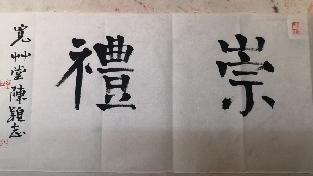 崇禮
寬艸堂陳穎志